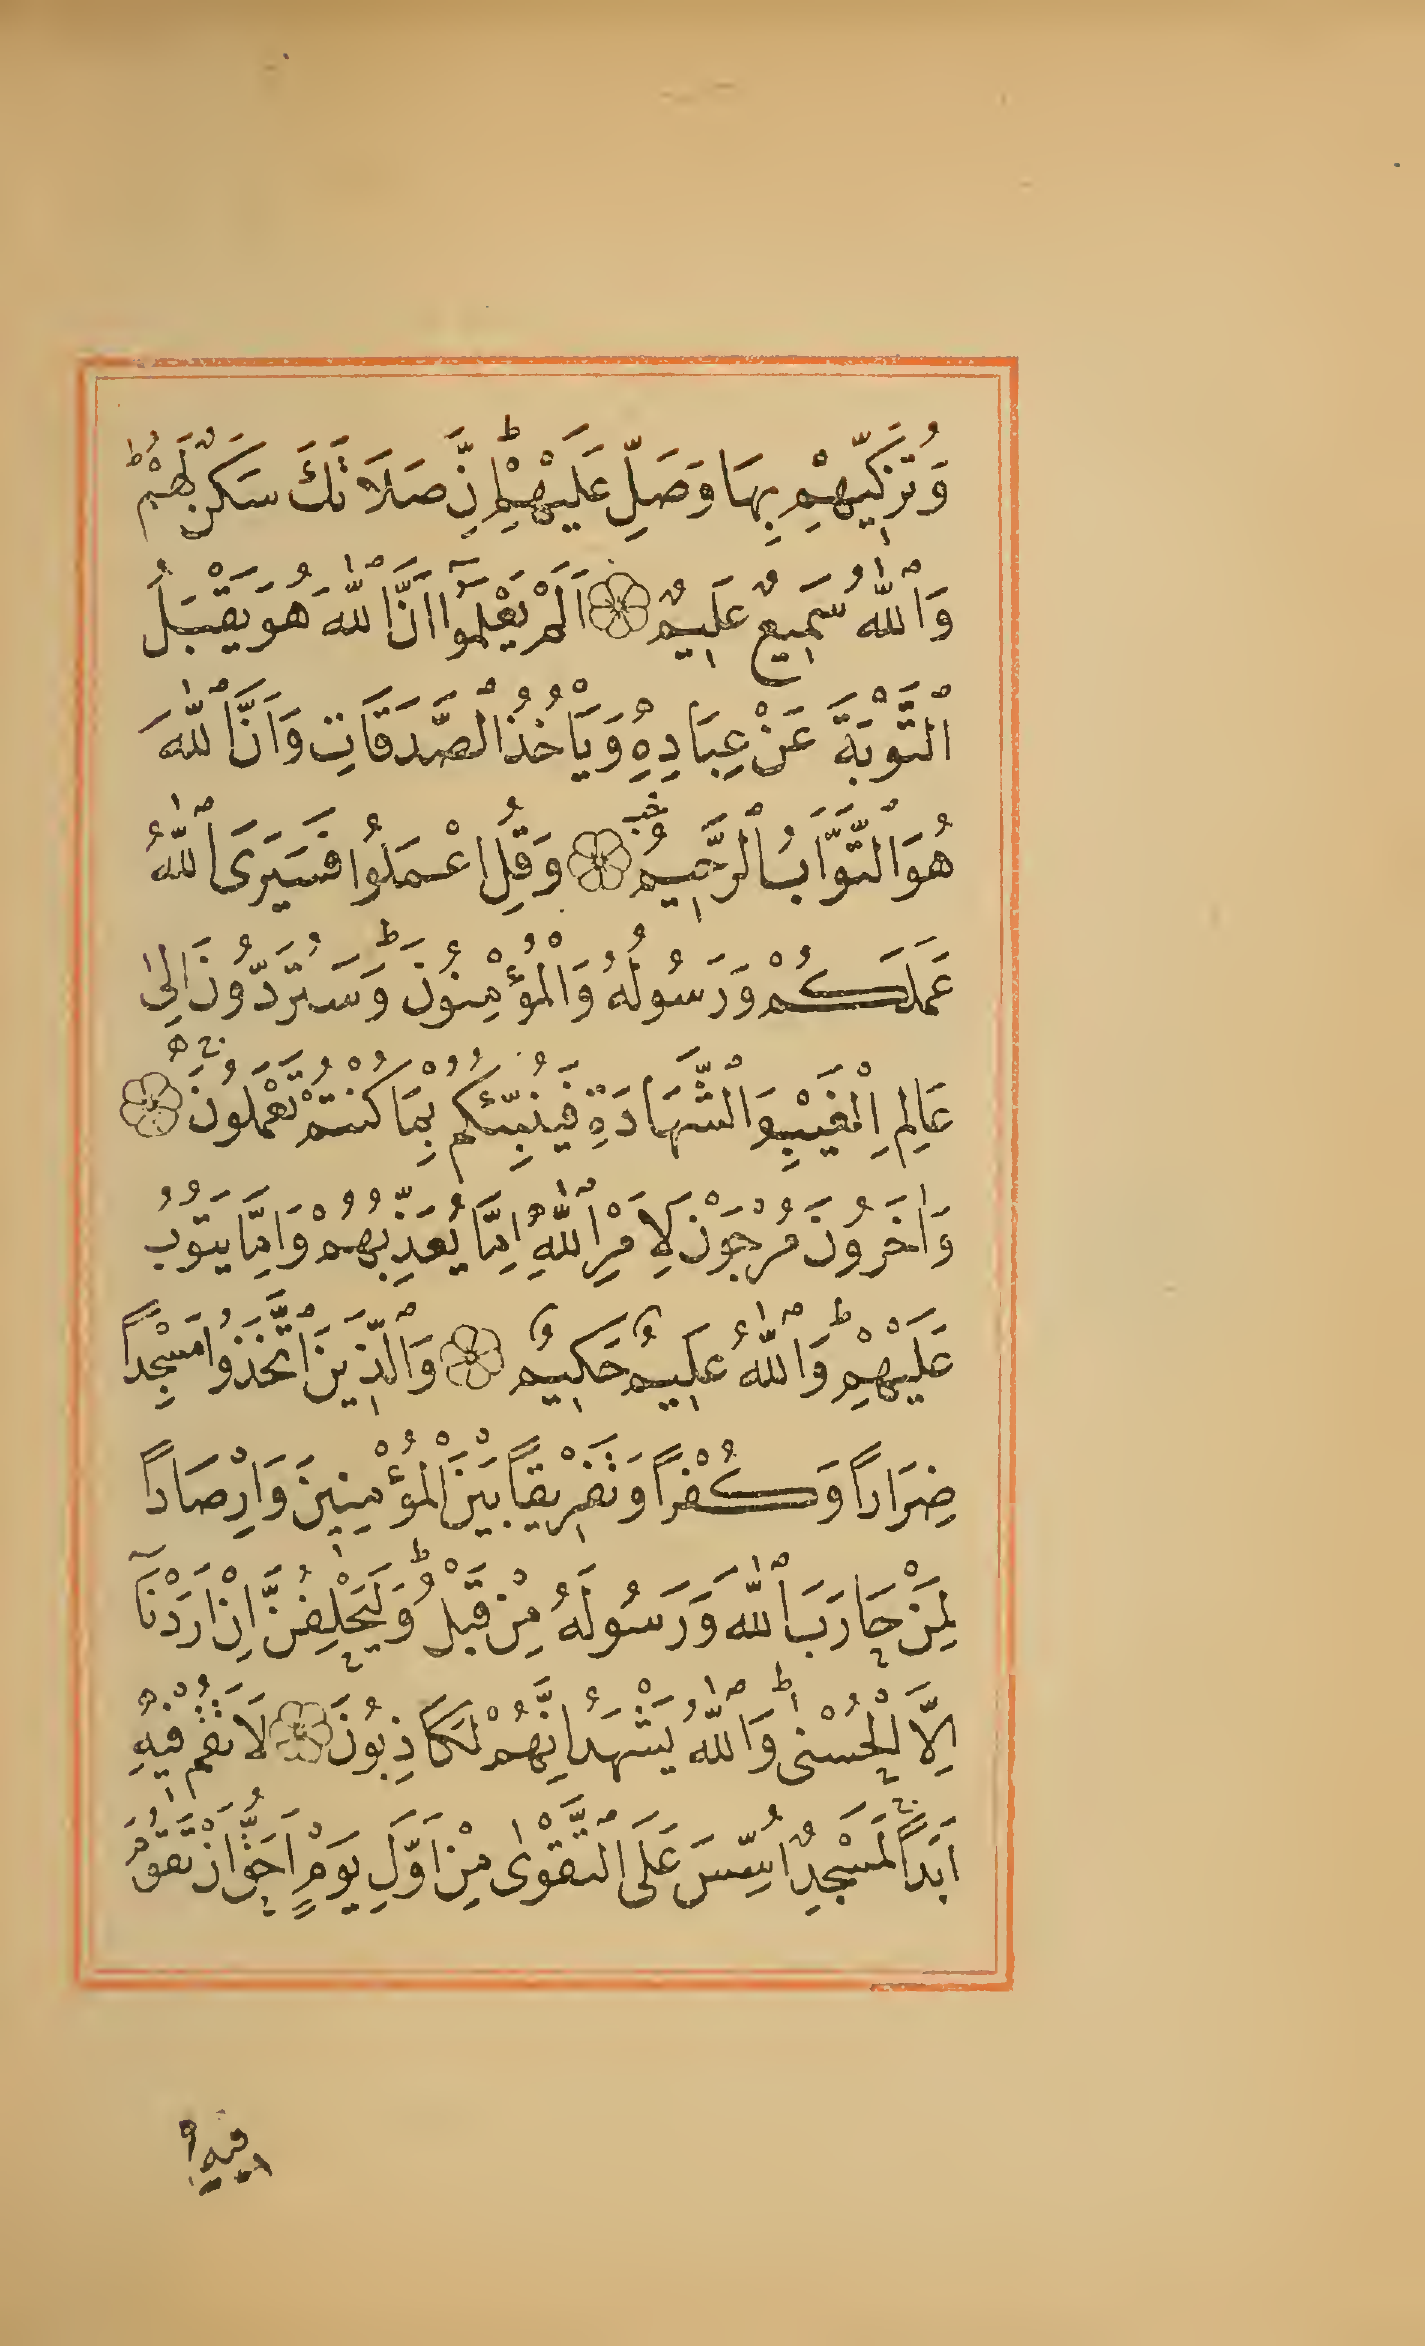 وَتُزَكِّيهِمْ بِهَا وَصَلِّ عَلَيْهِمْ ط اِنَّ صَلَاتَكَ سَكَنٌ لَهُمْ ط
وَاللّٰهُ سَمِيعٌ عَلِيمٌ ۝ اَلَمْ يَعْلَمُٓوا اَنَّ اللّٰهَ هُوَ يَقْبَلُ
التَّوْبَةَ عَنْ عِبَادِهِ وَيَأْخُذُ الصَّدَقَاتِ وَاَنَّ اللّٰهَ
هُوَ التَّوَّابُ الرَّحِيمُ ۝ وَقُلِ اعْمَلُوا فَسَيَرَى اللّٰهُ
عَمَلَكُمْ وَرَسُولُهُ وَالْمُؤْمِنُونَ ط وَسَتُرَدُّونَ اِلٰى
عَالِمِ الْغَيْبِ وَالشَّهَادَةِ فَيُنَبِّئُكُمْ بِمَا كُنْتُمْ تَعْمَلُونَ ۝
وَاٰخَرُونَ مُرْجَوْنَ لِاَمْرِ اللّٰهِ اِمَّا يُعَذِّبُهُمْ وَاِمَّا يَتُوبُ
عَلَيْهِمْ ط وَاللّٰهُ عَلِيمٌ حَكِيمٌ ۝ وَالَّذِينَ اتَّخَذُوا مَسْجِداً
ضِرَاراً وَكُفْراً وَتَفْرِيقاً بَيْنَ الْمُؤْمِنِينَ وَاِرْصَاداً
لِمَنْ حَارَبَ اللّٰهَ وَرَسُولَهُ مِنْ قَبْلُ ط وَلَيَحْلِفُنَّ اِنْ اَرَدْنَٓا
اِلَّا الْحُسْنٰى ط وَاللّٰهُ يَشْهَدُ اِنَّهُمْ لَكَاذِبُونَ ۝ لَا تَقُمْ فِيهِ
اَبَداً لَمَسْجِدٌ اُسِّسَ عَلَى التَّقْوٰى مِنْ اَوَّلِ يَوْمٍ اَحَقُّ اَنْ تَقُومَ
فيه